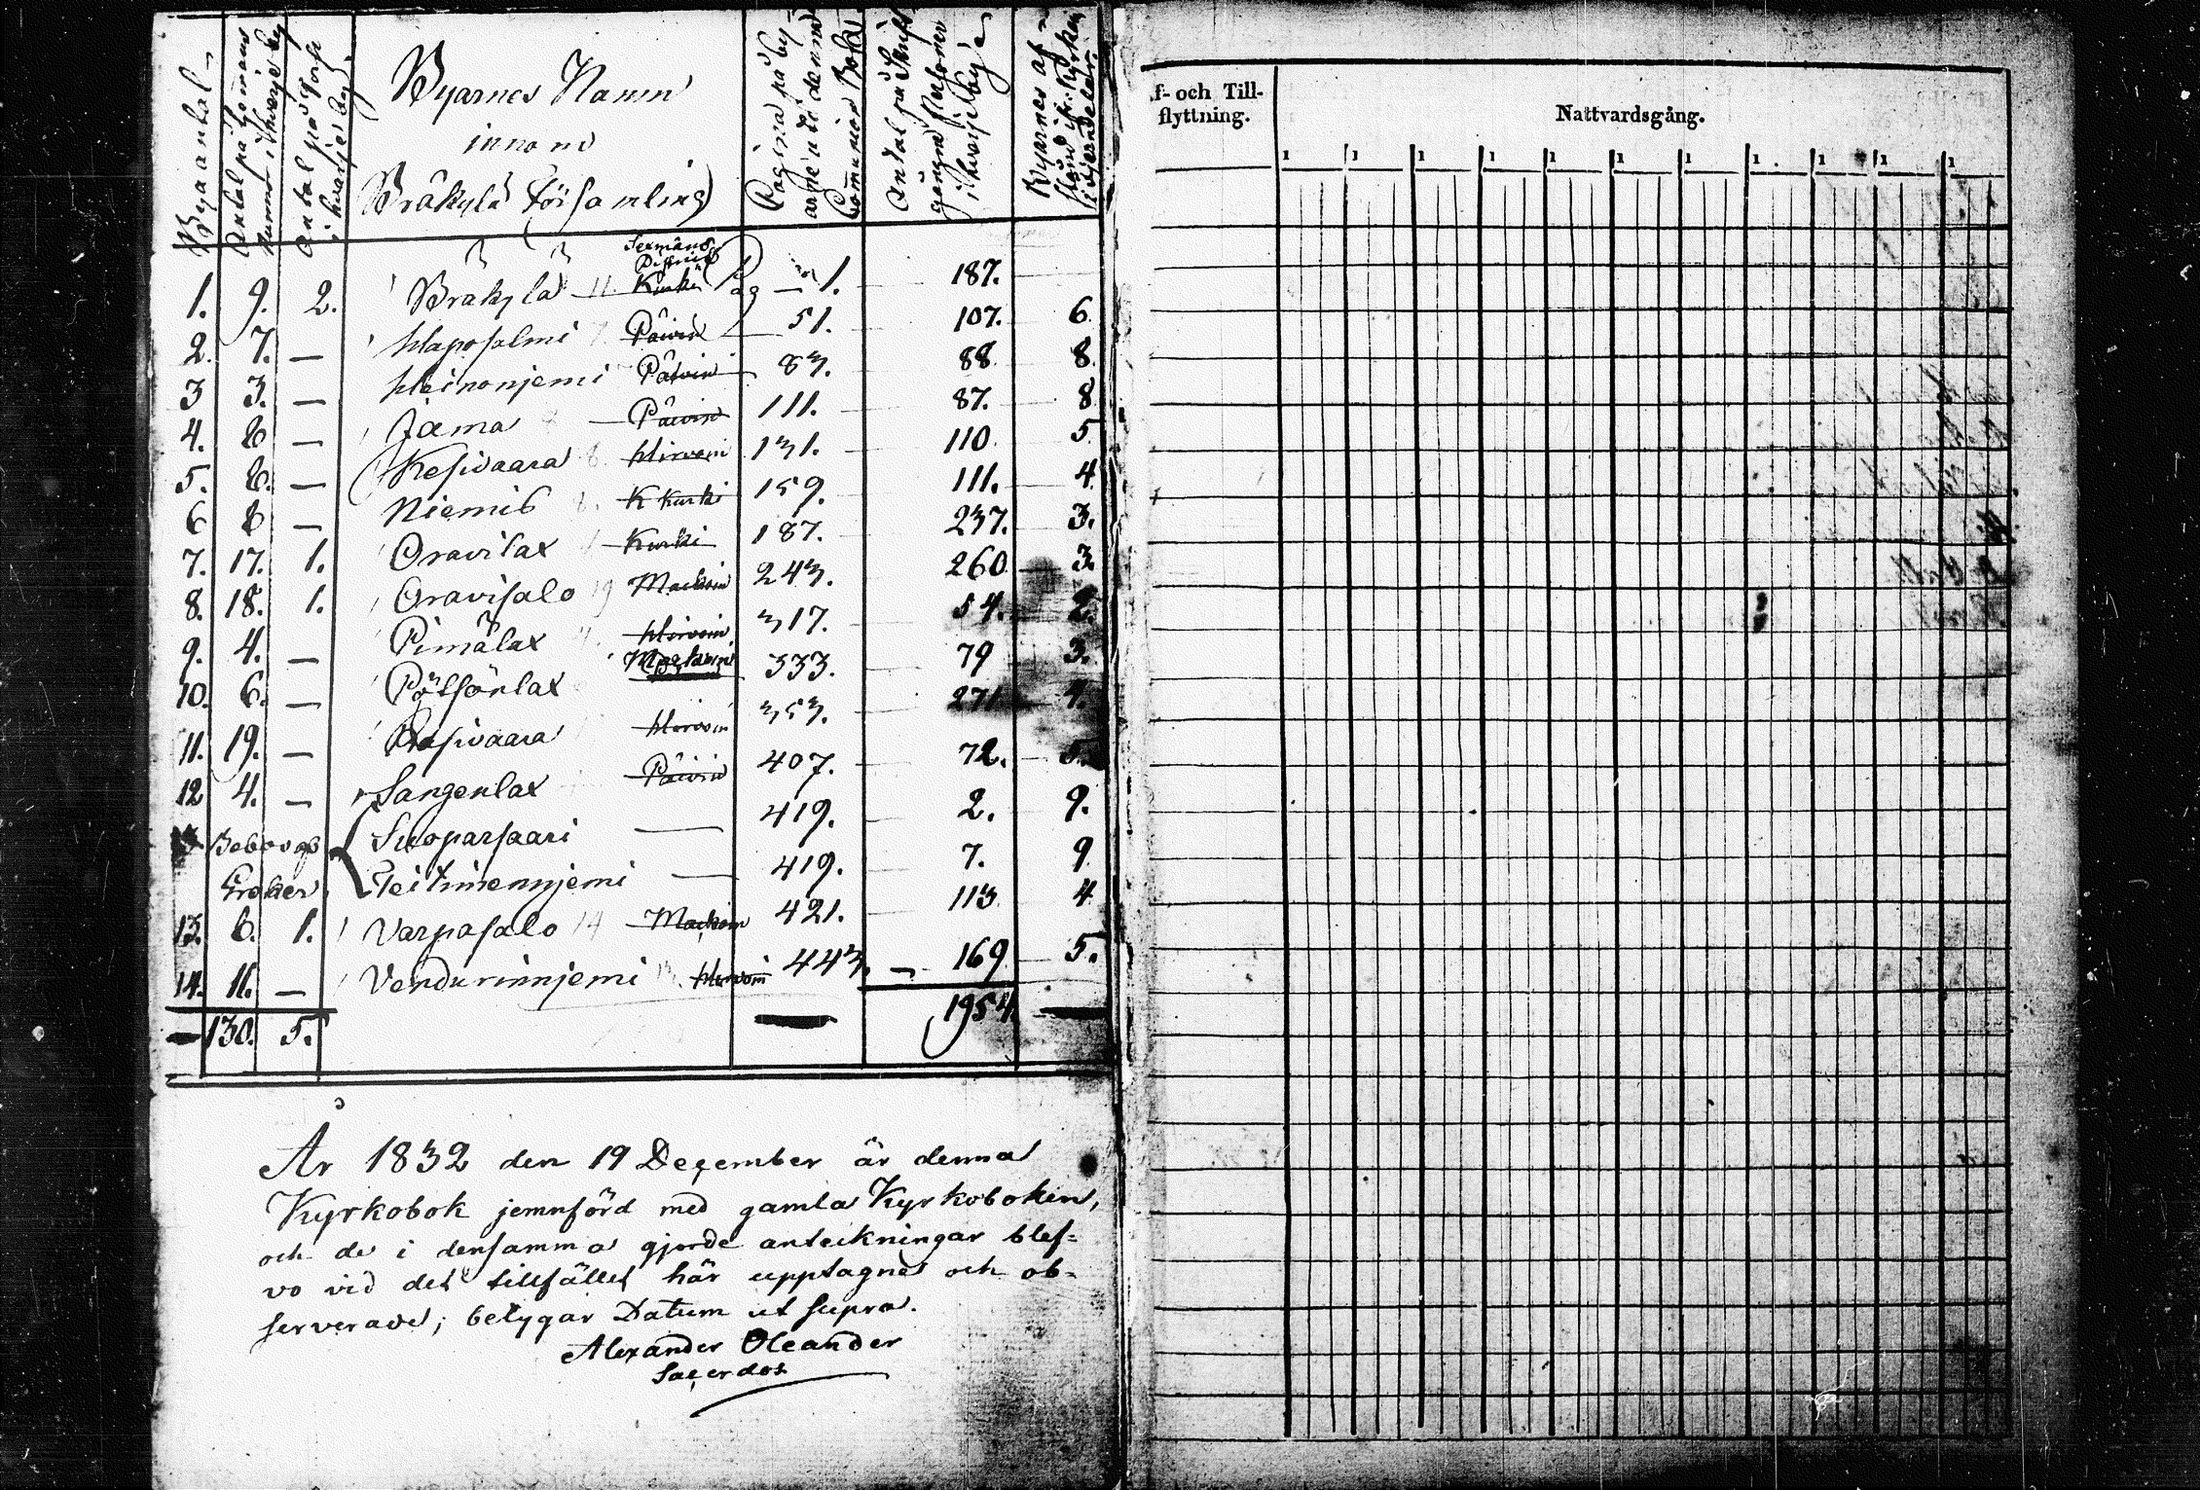 Byaantal
Antal på Hemans Nummer i hvarje by
Antal på Torp i hvarje by.
Byarnes Namn
innom
Bräkylä Församling
Pagina på byarne uti denna Communion Boken
Antal på Skriftgångne Personer i hvarje by
Byarnes afstånd ifr. Kyrkan i fjerndelar.
Sexmäns District
1. 9. 2. Bräkylä 11 Kurki Pag 1. 187.
2. 7. — Haposalmi 7. Päivin 51. 107. 6.
3 3. — Heinonjemi Päivin 83. 88 8.
4. 8 — Jama 8 Päivin 111. 87. 8
5. 8. — Kesivaara 8. Hirvoin 131. 110 5
6 8 — Niemis 8. K Kurki 159. 111. 4
7. 17. 1. Oravilax Kurki 187. 237. 3.
8. 18. 1. Oravisalo 19 Mackoin 243. 260 3.
9. 4. — Pimälax 4 Hirvoin 317. 54. 2.
10. 6. — Pötsönlax Mackoin 333. 79 3.
11. 19. — Rasivaara Hirvoin 353. 271 4.
12 4. — Sangenlax Päivin 407. 72. 5.
Suoparsaari — 419. 2. 9.
Teitinennjemi — 419. 7. 9
13. 6. 1. Varpasalo 14 Mackoin 421. 113 4
14. 11. — Vendurinnjemi 13 Hirvoin 443. — 169 5.
— 130. 5. — 1954. —
År 1832 den 19 December är denna
Kyrkobok jemnförd med gamla Kyrkoboken,
och de i densamma gjorde anteckningar blef=
vo vid det tillfället här upptagne och ob=
serverade; betygar Datum ut supra.
Alexander Oleander
Sacerdos
f- och Till-
flyttning.
Nattvardsgång.
1 1 1 1 1 1 1 1 1 1 1